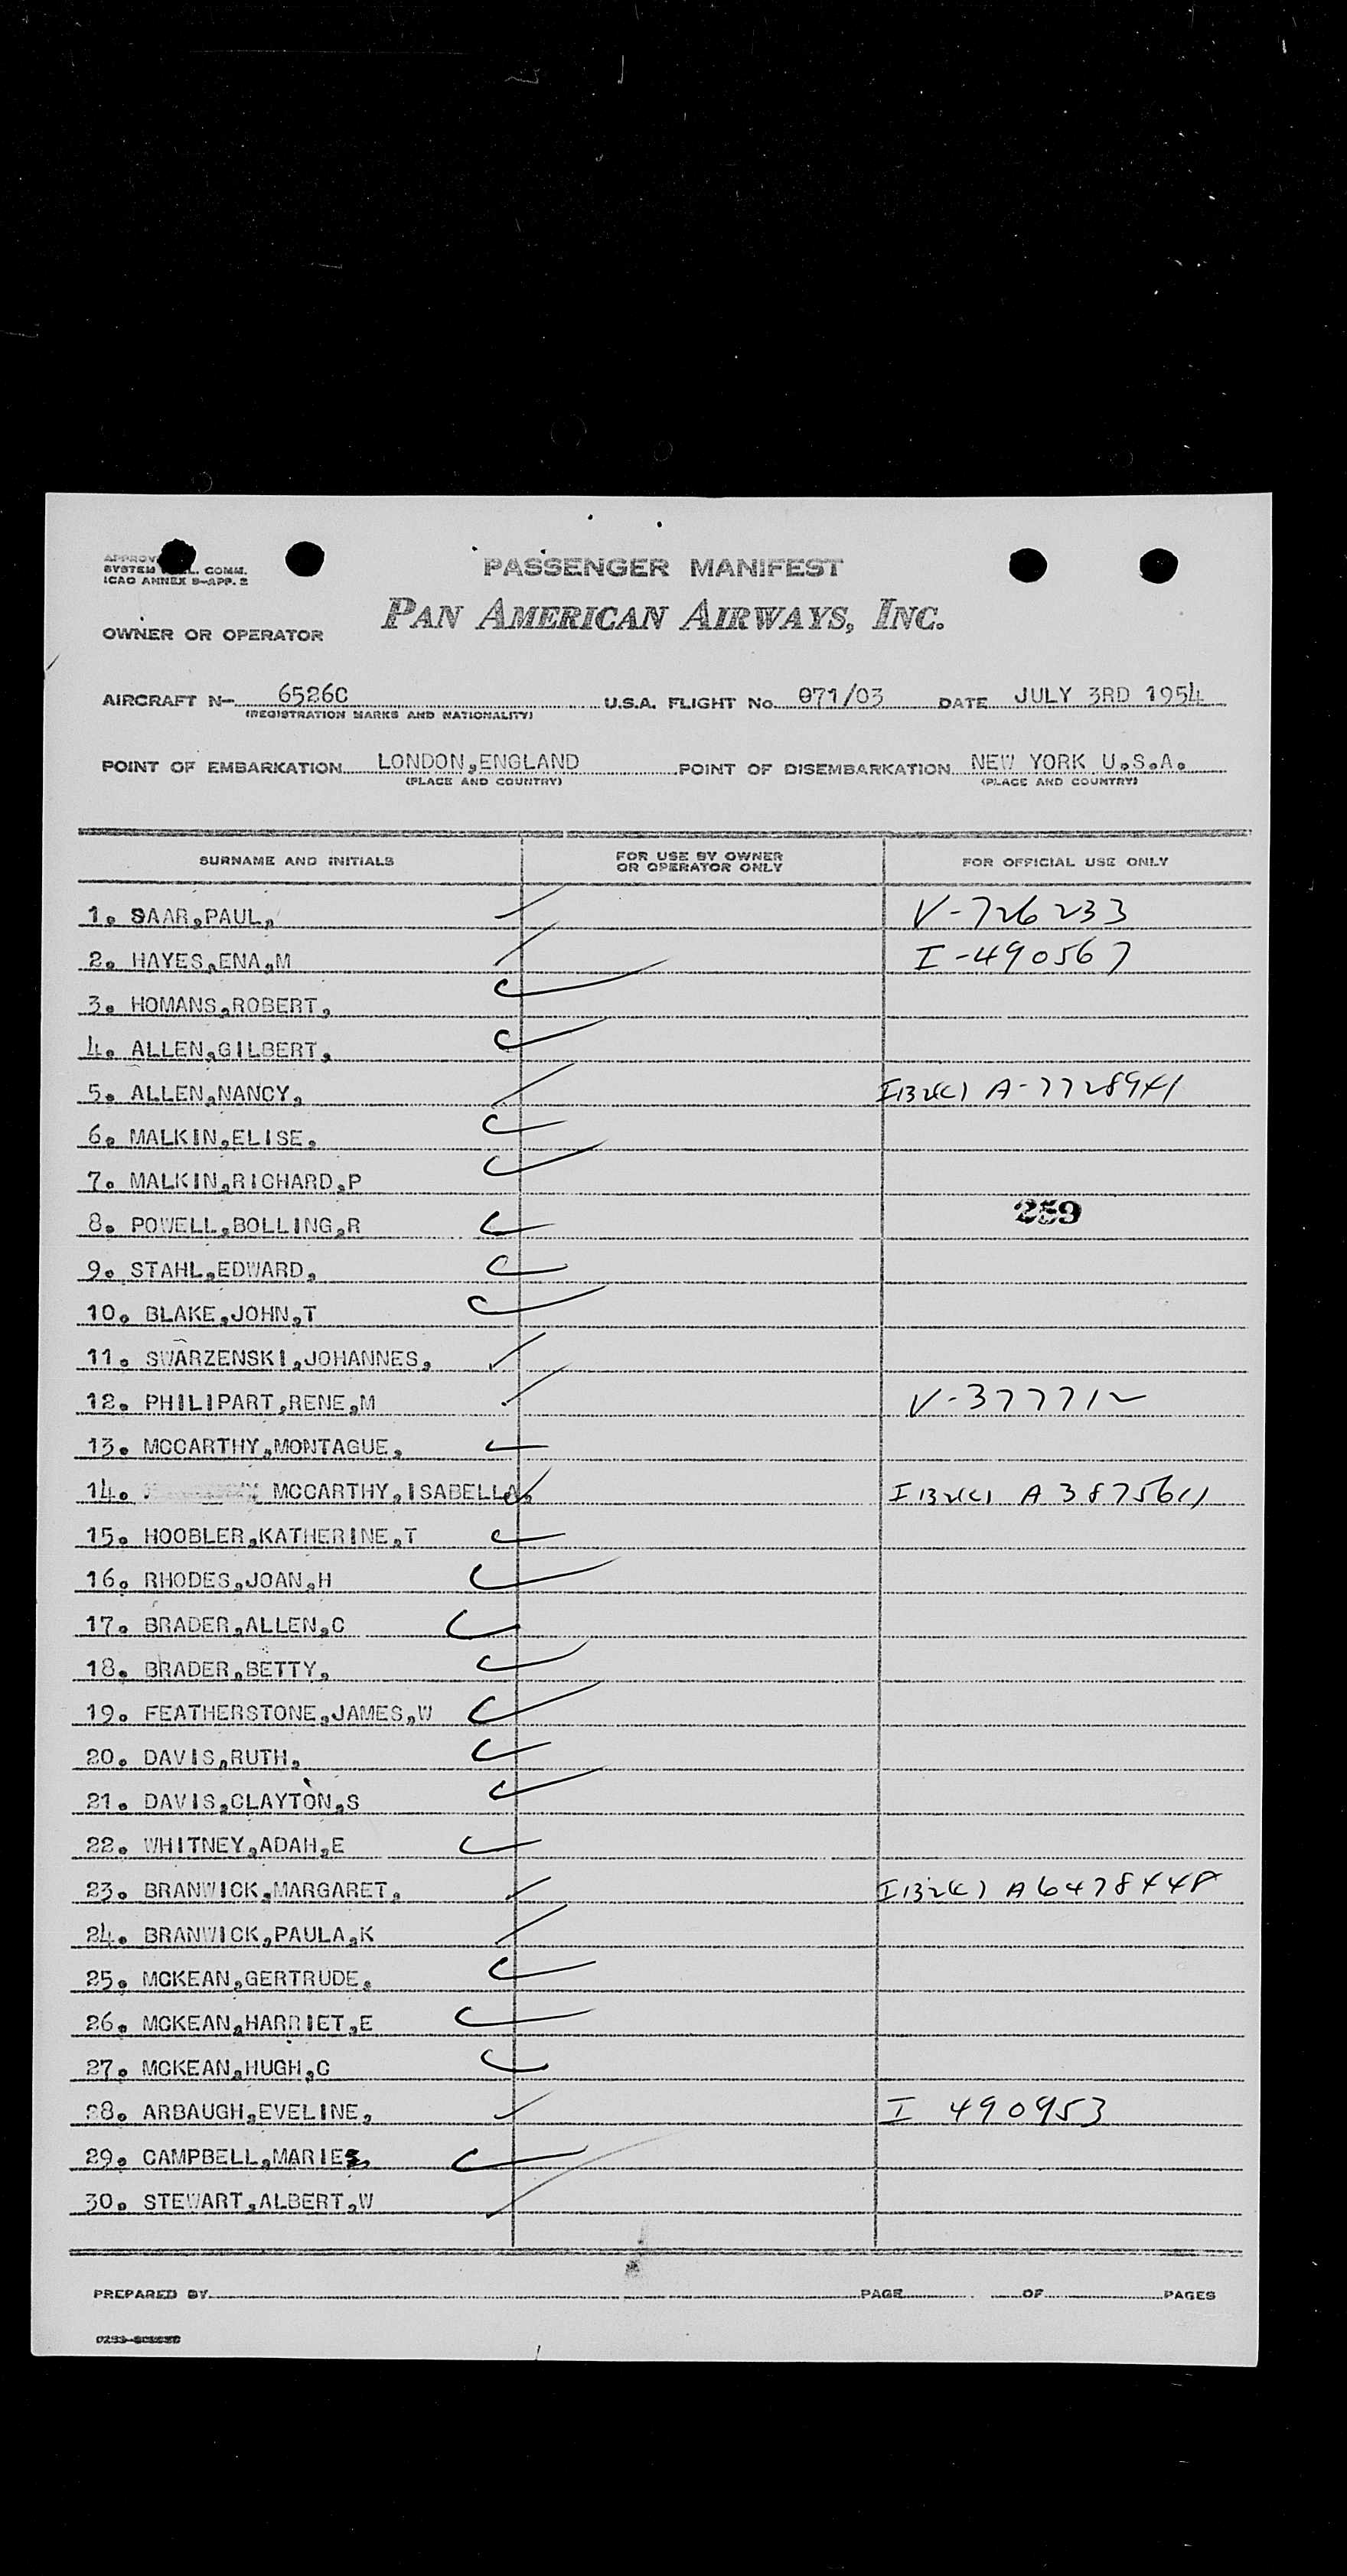 PASSENGER MANIFEST
SYSTEM COMM.
ICAO ANNEX 9-APP. 2
PAN AMERICAN AIRWAYS, INC.
OWNER OR OPERATOR
AIRCRAFT N- 6526C U.S.A. FLIGHT No. 071/03 DATE JULY 3RD 1954
(REGISTRATION MARKS AND NATIONALITY)
POINT OF EMBARKATION LONDON,ENGLAND POINT OF DISEMBARKATION NEW YORK U.S.A.
(PLACE AND COUNTRY) (PLACE AND COUNTRY)
SURNAME AND INITIALS FOR USE BY OWNER OR OPERATOR ONLY FOR OFFICIAL USE ONLY
1. SAAR,PAUL, V-726233
2. HAYES,ENA,M I-490567
3. HOMANS,ROBERT,
4. ALLEN,GILBERT,
5. ALLEN,NANCY, I132(c) A-7728941
6. MALKIN,ELISE,
7. MALKIN,RICHARD,P
259
8. POWELL,BOLLING,R
9. STAHL,EDWARD,
10. BLAKE,JOHN,T
11. SWARZENSKI,JOHANNES,
12. PHILIPART,RENE,M V-377712
13. MCCARTHY,MONTAGUE,
14. MCCARTHY,ISABELLA, I132(c) A
15. HOOBLER,KATHERINE,T
16. RHODES,JOAN,H
17. BRADER,ALLEN,C
18. BRADER,BETTY,
19. FEATHERSTONE,JAMES,W
20. DAVIS,RUTH,
21. DAVIS,CLAYTON,S
22. WHITNEY,ADAH,E
23. BRANWICK,MARGARET, I132(c) A6478448
24. BRANWICK,PAULA,K
25. MCKEAN,GERTRUDE,
26. MCKEAN,HARRIET,E
27. MCKEAN,HUGH,C
28. ARBAUGH,EVELINE, I 490953
29. CAMPBELL,MARIE,
30. STEWART,ALBERT,W
PREPARED BY PAGE OF PAGES